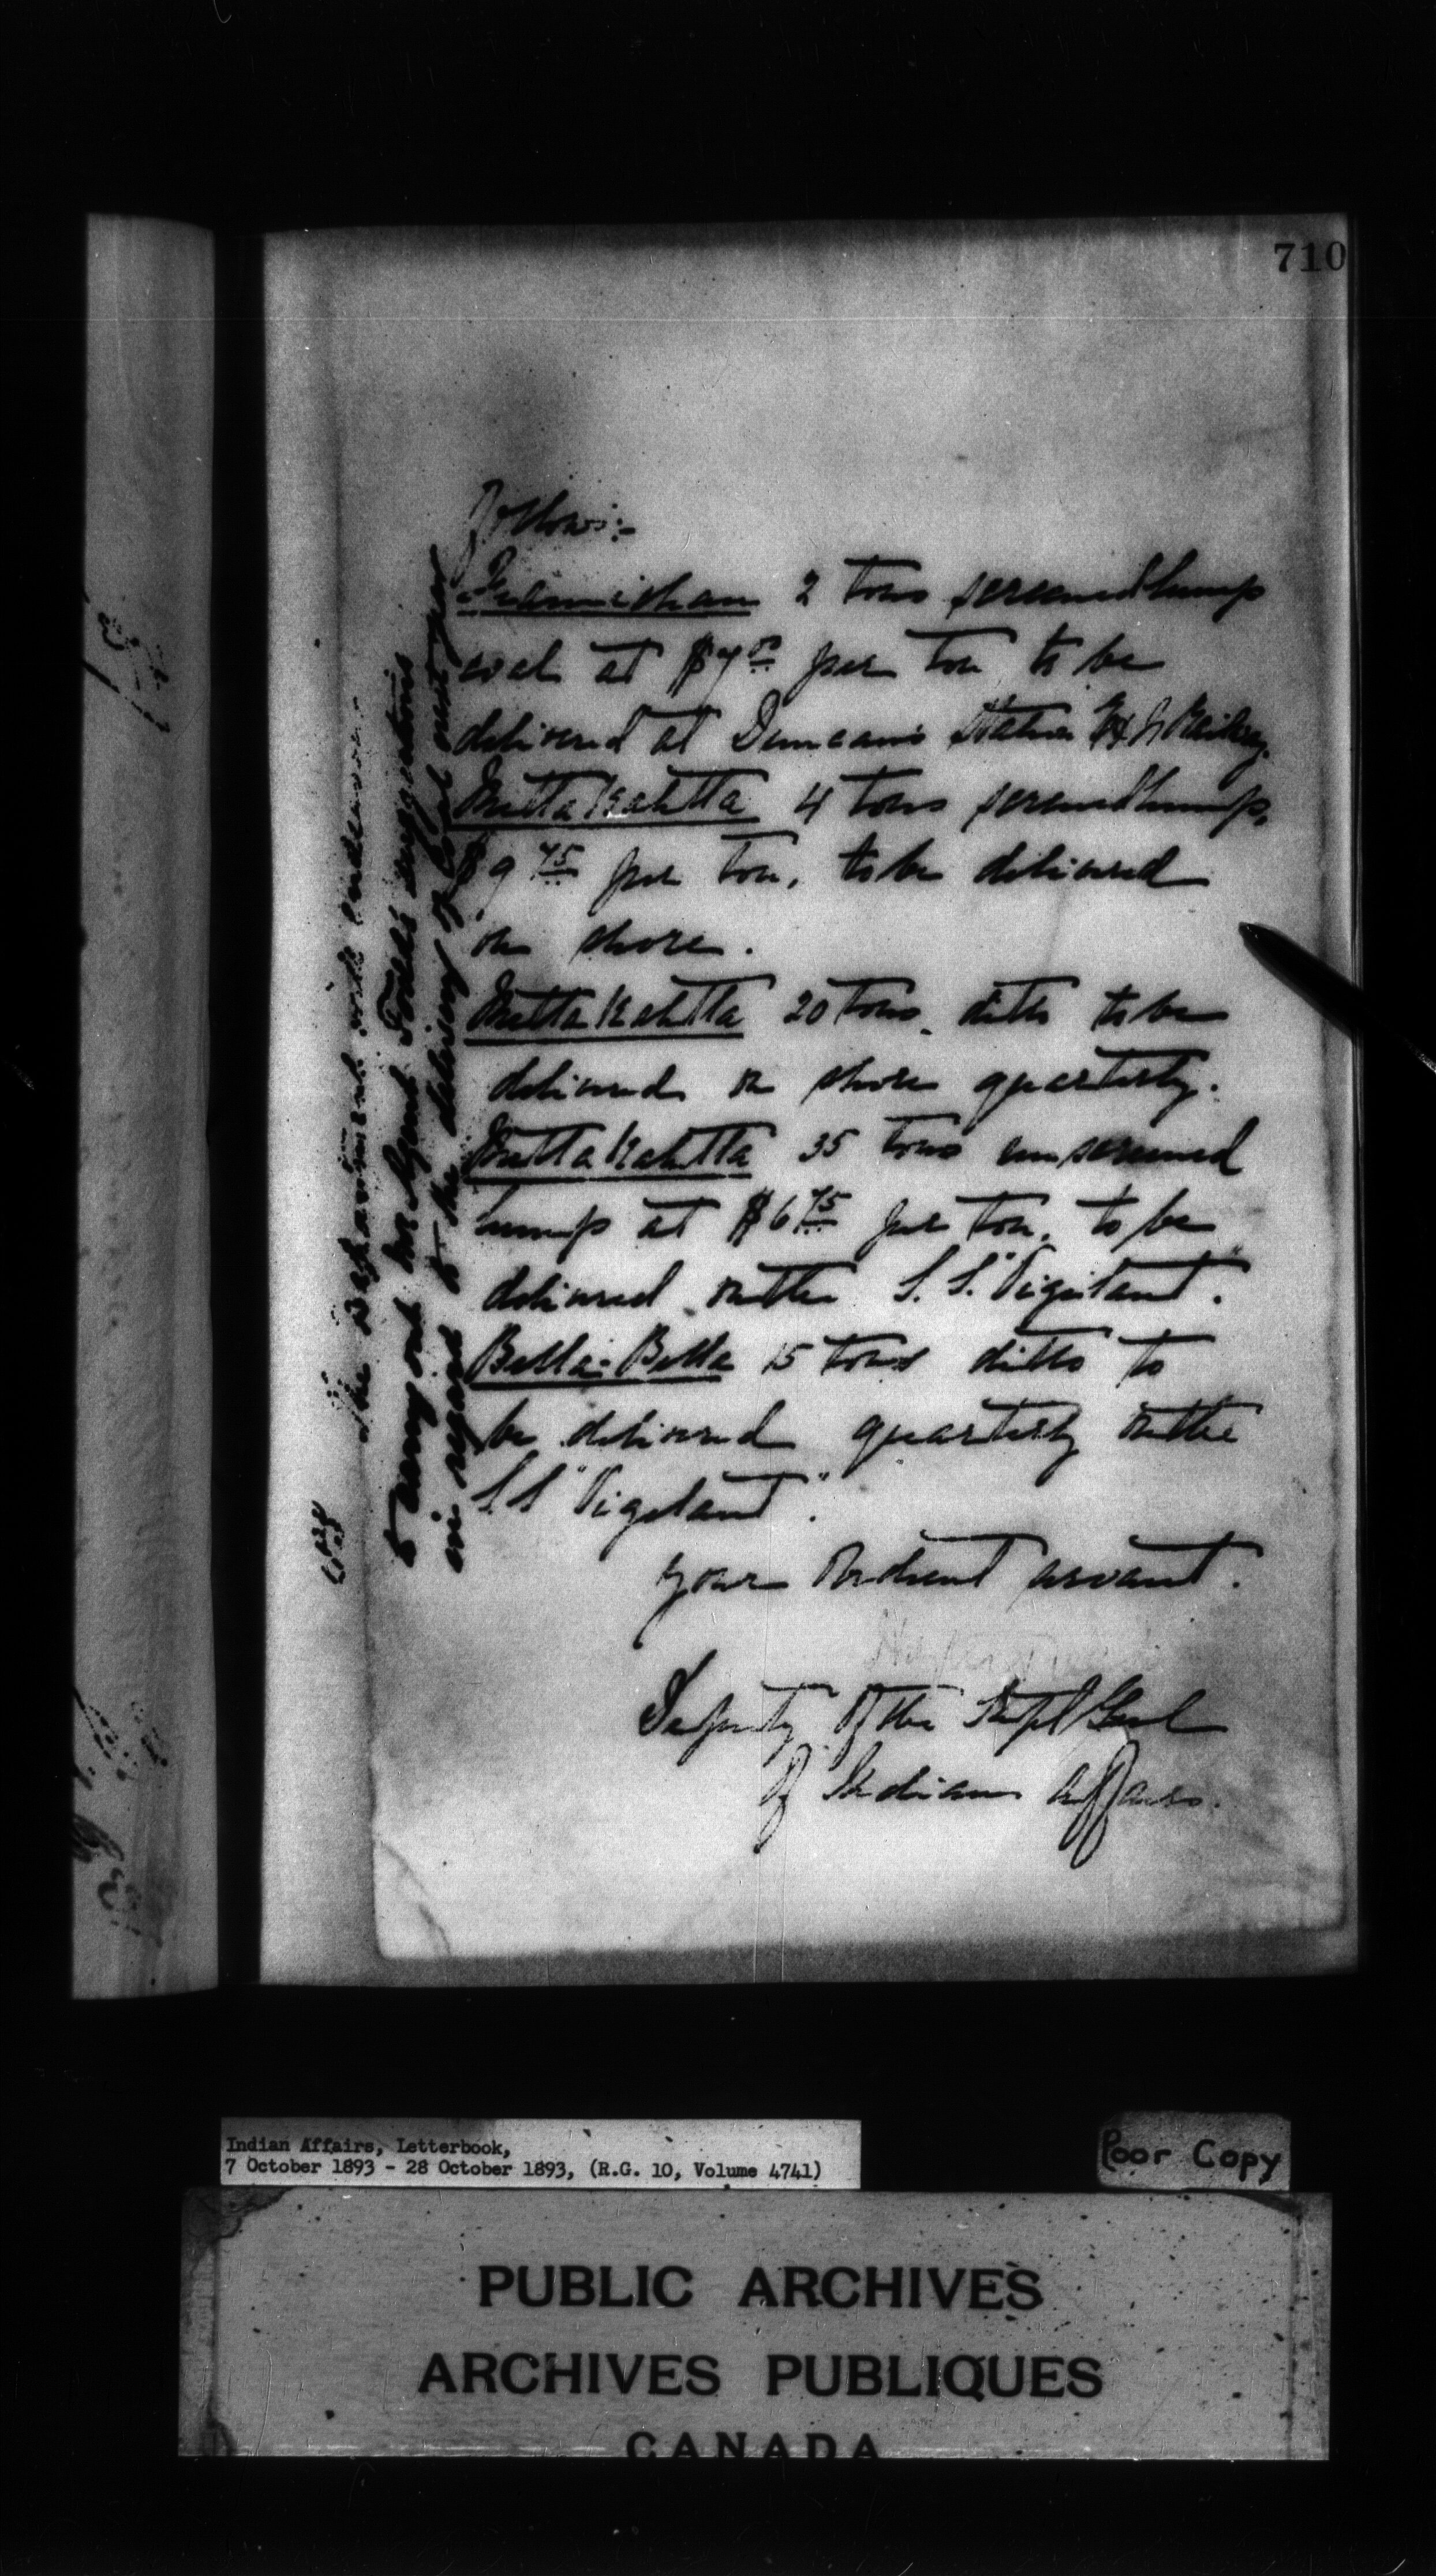 710
follows:-
Quamichan 2 tons screened lump
coal at $7.00 per ton to be
delivered at Duncan's Station E & N Railway.
MettaKahtla 4 tons screened lump,
$9.75 per ton, to be delivered
on shore.
MettaKahtla 20 tons ditto to be
delivered on shore quarterly.
MettaKahtla 35 tons unscreened
lump at $6.75 per ton, to be
delivered on the S.S. "Vigilant".
Bella-Bella 15 tons ditto to
be delivered quarterly on the
S.S "Vigilant".
Your obedient servant.
Deputy of the Supt Genl
of Indian Affairs.
The Department will endeavour
to carry out Mr Agent Todd's suggestions
in regard to the delivery of coal next year
Indian Affairs, Letterbook,
7 October 1893 - 28 October 1893, (R.G. 10, Volume 4741)
Poor Copy
PUBLIC ARCHIVES
ARCHIVES PUBLIQUES
CANADA